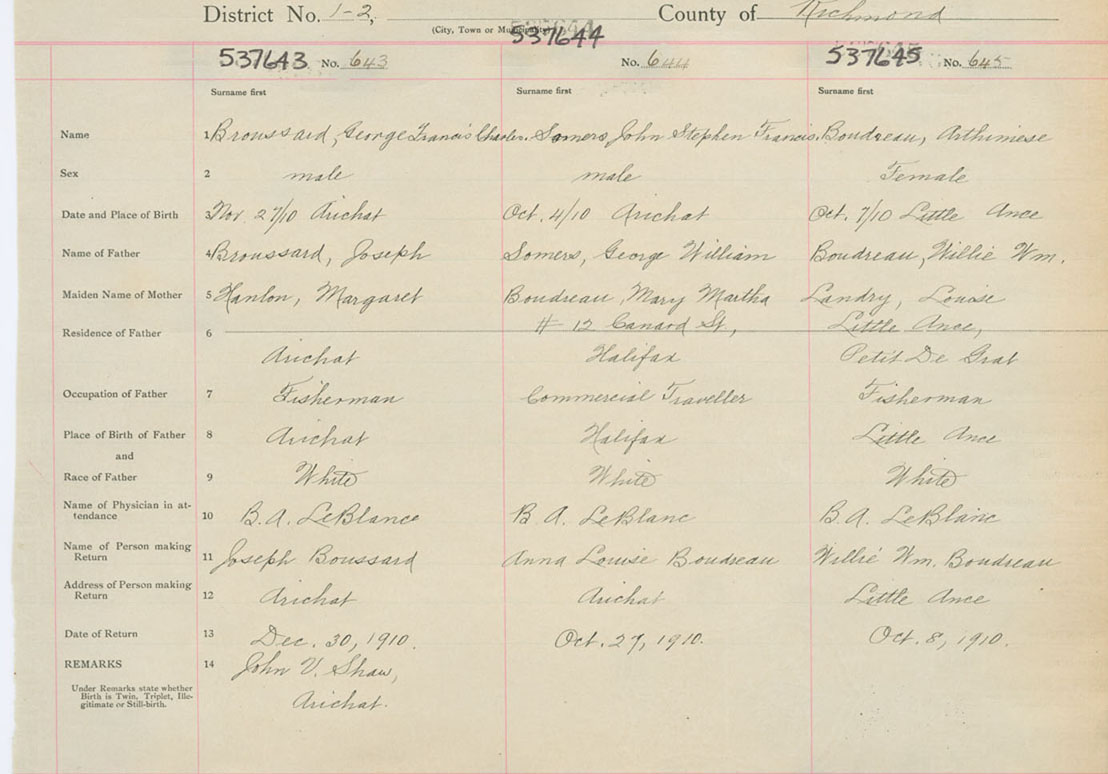 District No. 1-2, County of Richmond
(City, Town or Municipality)
537643 No. 643 537644 No. 644 537645 No. 645
Surname first Surname first Surname first
Name 1 Broussard, George Francis Charles. Somers, John Stephen Francis. Boudreau, Arthimese
Sex 2 male male Female
Date and Place of Birth 3 Nov. 27/10 Arichat Oct. 4/10 Arichat Oct. 7/10 Little Ance
Name of Father 4 Broussard, Joseph Somers, George William Boudreau, Willie Wm.
Maiden Name of Mother 5 Hanlon, Margaret Boudreau, Mary Martha Landry, Louise
Residence of Father 6 # 12 Canard St, Little Ance,
Arichat Halifax Petit De Grat
Occupation of Father 7 Fisherman Commercial Traveller Fisherman
Place of Birth of Father 8 Arichat Halifax Little Ance
and
Race of Father 9 White White White
Name of Physician in at-
tendance 10 B. A. LeBlance B. A. LeBlanc B. A. LeBlanc
Name of Person making
Return 11 Joseph Boussard Anna Louise Boudreau Willie Wm. Boudreau
Address of Person making
Return 12 Arichat Arichat Little Ance
Date of Return 13 Dec. 30, 1910. Oct. 27, 1910. Oct. 8, 1910.
REMARKS 14 John V. Shaw,
Under Remarks state whether
Birth is Twin, Triplet, Ille-
gitimate or Still-birth.
Arichat.